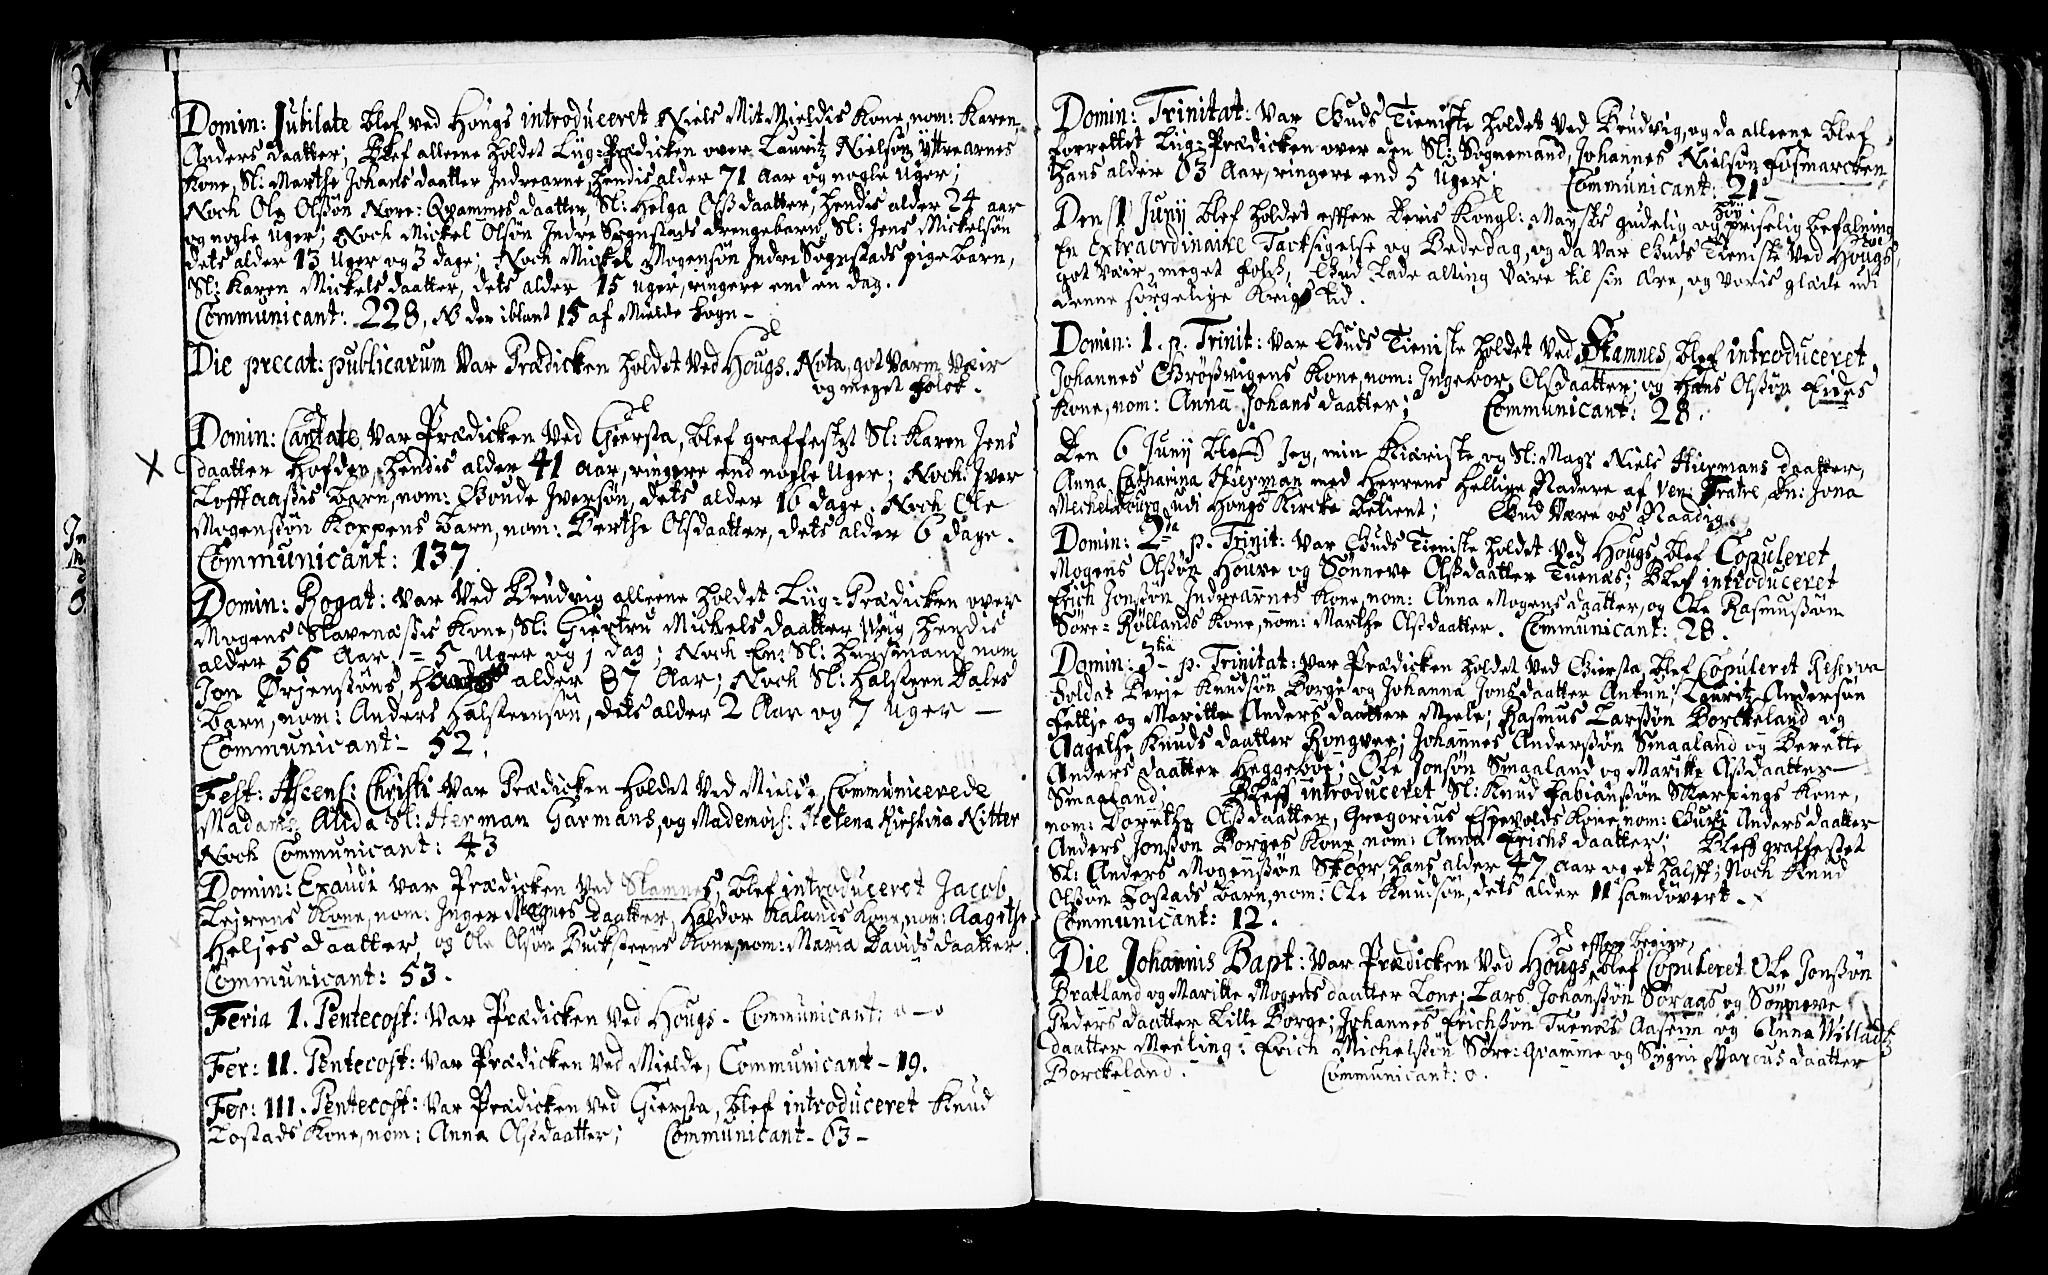 Domin: Jubilate blef ved Hougs introduceret Niels MitMieldis Kone, nom: Karen
Anders daatter; Blef alleene holdet Liig-Prædicken over Lauritz Nielsøn Yttrearnes
Kone, Sl: Marthe Johans daatter Indrearne, hendis alder 71 Aar og nogle Uger;
Noch Ole Olsøn Nore: Qvammes daatter, Sl: Helga Olsdaatter, hendis alder 24 aar
og nogle Uger; Noch Mickel Olsøn Indre Sognstads drengebarn, Sl: Jens Mickelsøn
dets alder 13 Uger og 3 dage; Noch Mickel Mogensøn Indre Sognstads pigebarn,
Sl: Karen Mickels daatter, dets alder 15 uger, ringere end en dag.
Communicant: 228, NB der iblant 15 af Mielde Sogn –
Die precat: publicarum var Prædicken holdet ved Hougs. Nota, got varm Væir
og meget folck.
Domin: Cantate var Prædicken ved Giersta, blef graffestet Sl: Karen Jens
X daatter Hofden, hendis alder 41 aar, ringere end nogle Uger; Noch Iver
Lofftaassis barn, nom: Goude Iversøn, dets alder 16 dage. Noch Ole
Mogenssøn Koppens barn, nom: Berthe Olsdaatter, dets alder 6 dage.
Communicant: 137.
Domin: Rogat: var ved Brudvig alleene holdet Liig-Prædicken over
Mogens Slavenæssis Kone, Sl: Giertru Mickels daatter hendis
alder 56 Aar = 5 Uger og 1 dag; Noch En: Sl: huusmand nom
Jon Ørjenssøns, alder 87 Aar; Noch Sl: Halsteen Dales
barn, nom: Anders Halsteensøn, dets alder 2 Aar og 7 Uger –
Communicant – 52.
Fest: Ascens: Christi var Prædicken holdet ved Mielde, Communicerede
Madame Alida Sl: Herman Garmans, og Mademois: Helena Kirstina Nitter
Noch Communicant: 43
Domin: Exaudi var Prædicken ved Stamnes, blef introduceret Jacob
Leirens Kone, nom: Inger Magnes daatter, Haldor Kalands Kone, nom: Aagethe
Heljes daatter, og Ole Olsøn Bucksteens Kone, nom: Maria Davids daatter.
Communicant: 53.
Feria 1. Pentecost: var Prædicken ved Hougs. Communicant: o – o
Fer: II. Pentecost: var Prædicken ved Mielde, Communicant – 19.
Fer: III. Pentecost: var Prædicken ved Giersta, blef introduceret Knud
Tostads Kone, nom: Anna Olsdaatter; Communicant – 63 –
Domin: Trinitat: var Guds Tieniste holdet ved Brudvig, og da alleene blef
forrettet Liig-Prædicken over den Sl: Sognemand, Johannes Nielsøn Fosmarcken,
Hans alder 63 Aar, ringere end 5 Uger; Communicant: 21 –
Den 1 Junij blef holdet effter Deris Kongl: Mayts gudelig og høypriselig befalning
En Extraordinaire Tacksigelse og Bededag, og da var Guds Tieniste ved Hougs,
got Væir, meget folck, Gud lade alting være til sin Ære, og voris glæde udi
denne sørgelige Krigs Tid.
Domin: 1. p. Trinit: var Guds Tieniste holdet ved Stamnes, blef introduceret
Johannes Grøsvigens Kone, nom: Ingebor Olsdaatter; og Hans Olssøn Eides
Kone, nom: Anna Johans daatter; Communicant: 28.
Den 6 Junij bleff Jeg, min Kiæriste og Sl: Mags Niels Hiermans daatter,
Anna Catharina Hierman med Herrens hellige Nadere af Ven: Fratre, Dn: Jona
Mechelbourg udi Hougs Kircke betient; Gud Være os Naadig.
Domin: 2da p. Trinit: var Guds Tieniste holdet ved Hougs, blef Copuleret
Mogens Olssøn Houre og Sønneve Olsdaatter Tuenæs; Blef introduceret
Erich Jonssøn Indrearnes Kone, nom: Anna Mogens daatter, og Ole Rasmussøn
Søre-Røllands Kone, nom: Marthe Olsdaatter. Communicant: 28.
Domin: 3tia p. Trinitat: var Prædicken holdet ved Giersta, blef Copuleret Reserva
Soldat Berje Knudsøn Borge og Johanna Jonsdaatter Antun; Lauritz Andersøn
Fettje og Maritte Anders daatter Miele; Rasmus Larssøn Borckeland og
Aagethe Knuds daatter Rongver; Johannes Anderssøn Smaaland og Berette
Anders daatter Heggebøe; Ole Jonsøn Smaaland og Maritte Olsdaatter
Smaaland; Bleff introduceret Sl: Knud Fabianssøn Skerpings Kone,
nom: Dorethe Olsdaatter, Gregorius Espevolds Kone, nom: Guri Anders daatter
Anders Jonssøn Borges Kone, nom: Anna Erichs daatter; Bleff graffestet
Sl: Anders Mogenssøn Skaar, hans alder 47 Aar og et halff; Noch Knud
Olssøn Tostads barn, nom: Ole Knudsøn, dets alder 11 samdøvert.
Communicant: 12.
Die Johannis Bapt: var Prædicken ved Hougs, effter begier, blef Copuleret Ole Jonssøn
Bratland og Maritte Mogens daatter Lone; Lars Johanssøn Søraas og Sønneve
Peders daatter Lille Borge; Johannes Erichssøn Tuenæs Aaseim og Anna Willads
daatter Meeling; Erich Michelssøn Søre-Qvamme og Sygni Marcus daatter
Borckeland. Communicant: o.